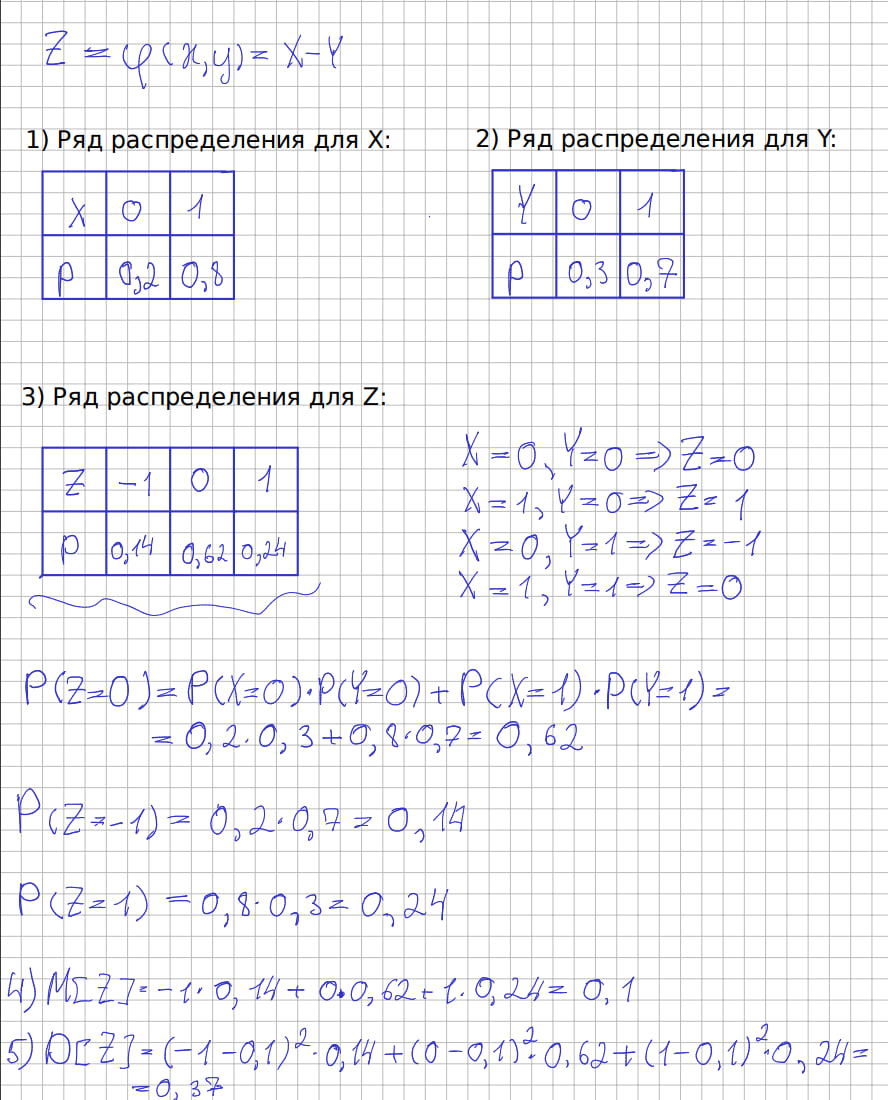 Z = φ(x,y) = X-Y
1) Ряд распределения для X: 2) Ряд распределения для Y:
X 0 1 Y 0 1
P 0,2 0,8 P 0,3 0,7
3) Ряд распределения для Z:
X=0, Y=0 => Z=0
Z -1 0 1
X=1, Y=0 => Z=1
X=0, Y=1 => Z=-1
P 0,14 0,62 0,24
X=1, Y=1 => Z=0
P(Z=0)=P(X=0)·P(Y=0)+P(X=1)·P(Y=1)=
=0,2·0,3+0,8·0,7=0,62
P(Z=-1)=0,2·0,7=0,14
P(Z=1)=0,8·0,3=0,24
4) M[Z]=-1·0,14+0·0,62+1·0,24=0,1
5) D[Z]=(-1-0,1)²·0,14+(0-0,1)²·0,62+(1-0,1)²·0,24=
=0,37